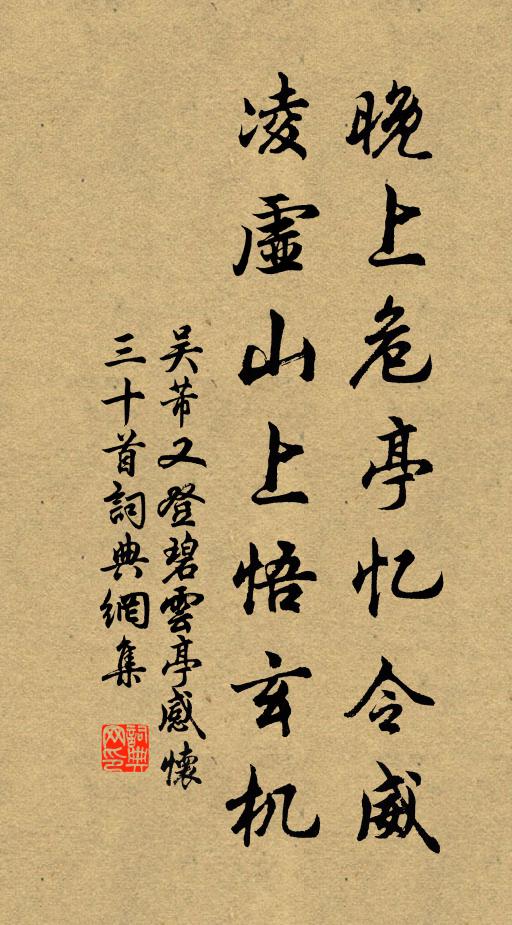 晚上危亭忆令威
凌虚山上悟玄机
吴芾又登碧雲亭感懷
三十首詞典網集
詞典网印